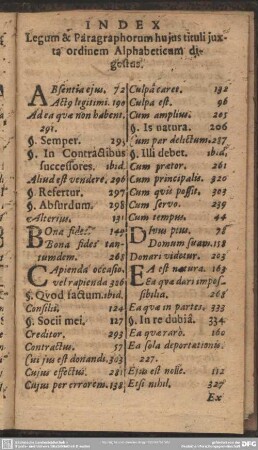 INDEX
Legum & Paragraphorum hujus tituli jux-
ta ordinem Alphabeticum di-
gestus.
ABsentia ejus. 72
Actq; legitimi. 190
Ad ea quæ non habent.
291.
§. Semper. 295
§. In Contractibus
successores. ibid.
Aliud est vendere. 296
§. Refertur. 297
§. Absurdum. 298
Alterius. 191
BOna fides. 149
Bona fides tan-
tumdem. 268
CApienda occasio.
vel rapienda 306
§. Qvod factum. ibid.
Consilii. 124
§. Socii mei. 127
Creditor. 293
Contractus. 57
Cui jus est donandi. 303
Cujus effectus. 281
Cujus per errorem. 138
Culpâ caret. 132
Culpa est. 96
Cum amplius. 205
§. Is natura. 206
Cum par delictum. 257
§. Illi debet. ibid.
Cum prætor. 261
Cum principalis. 320
Cum quis possit. 303
Cum servo. 239
Cum tempus. 44
Domum suam. 158
Donari vidotur. 203
EA est natura. 163
Ea quæ dari impos-
sibilia. 268
Ea quæ in partes. 333
§. In re dubiâ. 334
Ea quæraro. 160
Ea sola deportationis.
227.
Ejus est nolle. 112
Etsi nihil. 327
Ex